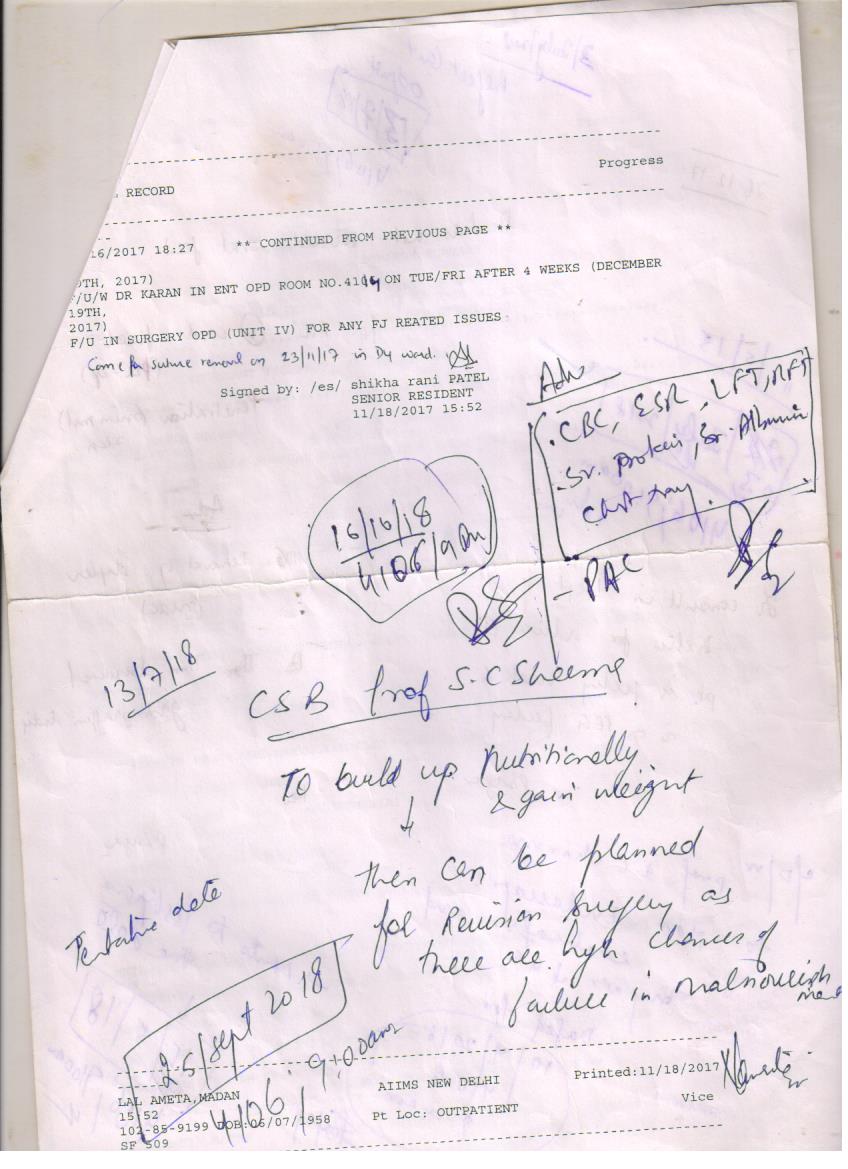 Progress
RECORD
16/2017 18:27 ** CONTINUED FROM PREVIOUS PAGE **
TH, 2017)
F/U/W DR KARAN IN ENT OPD ROOM NO. ON TUE/FRI AFTER 4 WEEKS (DECEMBER
19TH,
2017)
F/U IN SURGERY OPD (UNIT IV) FOR ANY FJ REATED ISSUES
Come for suture removal on 23/11/17 in D4 ward.
Signed by: /es/ shikha rani PATEL
SENIOR RESIDENT
11/18/2017 15:52
Adv
. CBC, ESR, LFT, RFT
. Sr. Protein, Sr. Albumin
Chest xray.
- PAC
16/10/18
4106/9am
13/7/18
CSB Prof S.C Sharma
To build up nutritionally
& gain weight
↓
then can be planned
for Revision surgery as
there are high chances of
failure in malnourish
Tentative date
25/sept 2018
4106, 9:00am
LAL AMETA,MADAN AIIMS NEW DELHI Printed:11/18/2017
15:52 Vice
102-85-9199 DOB:06/07/1958 Pt Loc: OUTPATIENT
SF 509